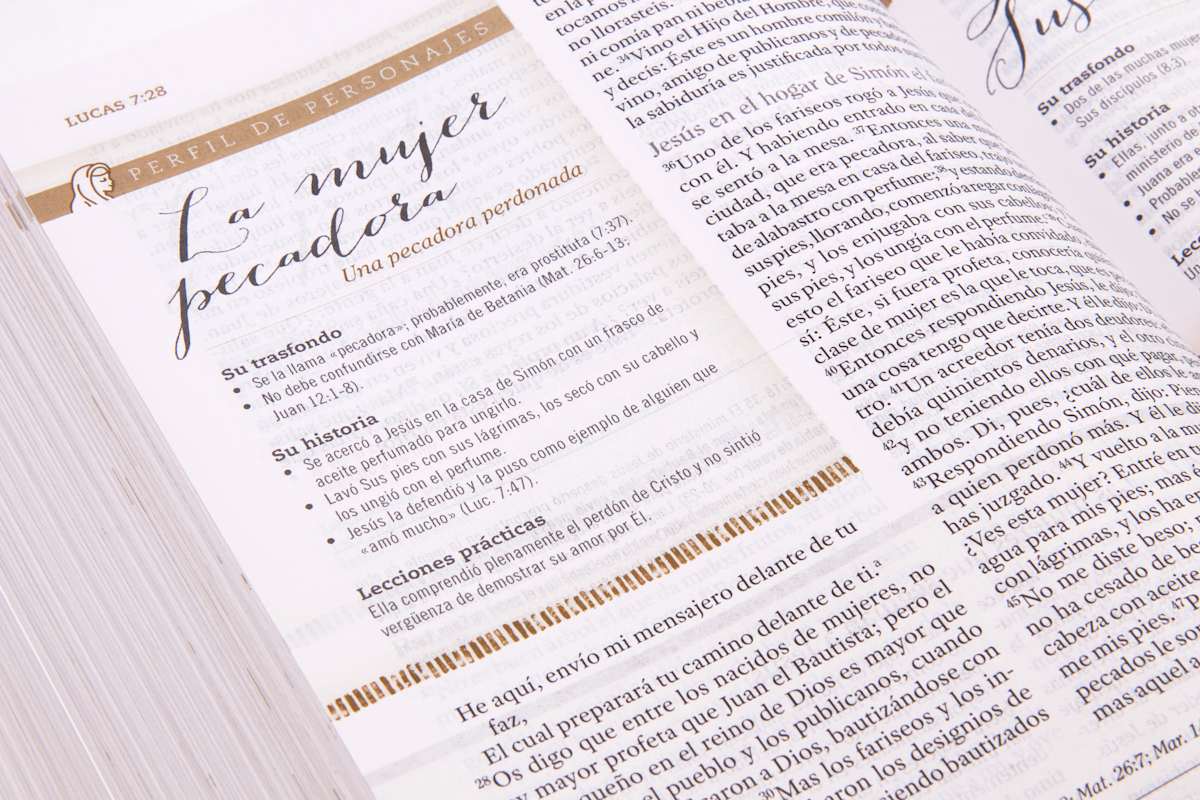 LUCAS 7:28
PERFIL DE PERSONAJES
La mujer
pecadora
Una pecadora perdonada
Su trasfondo
• Se la llama «pecadora»; probablemente, era prostituta (7:37).
• No debe confundirse con María de Betania (Mat. 26:6-13;
Juan 12:1-8).
Su historia
• Se acercó a Jesús en la casa de Simón con un frasco de
aceite perfumado para ungirlo.
• Lavó Sus pies con sus lágrimas, los secó con su cabello y
los ungió con el perfume.
• Jesús la defendió y la puso como ejemplo de alguien que
«amó mucho» (Luc. 7:47).
Lecciones prácticas
Ella comprendió plenamente el perdón de Cristo y no sintió
vergüenza de demostrar su amor por Él.
He aquí, envío mi mensajero delante de tu
faz,
El cual preparará tu camino delante de ti.a
28Os digo que entre los nacidos de mujeres, no
mayor profeta que Juan el Bautista; pero el
en el reino de Dios es mayor que
pueblo y los publicanos, cuando
a Dios, bautizándose con
30Mas los fariseos y los in-
los designios de
bautizados
en la
tocamos
no llorasteis.
ni comía pan ni
ne. 34Vino el Hijo del Hombre,
y decís: Éste es un hombre comilón
vino, amigo de publicanos y de
la sabiduría es justificada por todos
Jesús en el hogar de Simón el
36Uno de los fariseos rogó a Jesús que
con él. Y habiendo entrado en casa
se sentó a la mesa. 37Entonces una
ciudad, que era pecadora, al saber
taba a la mesa en casa del fariseo,
de alabastro con perfume; 38y estando
sus pies, llorando, comenzó a regar con
pies, y los enjugaba con sus cabellos
sus pies, y los ungía con el perfume.
esto el fariseo que le había convidado,
sí: Éste, si fuera profeta, conocería
clase de mujer es la que le toca, que es
40Entonces respondiendo Jesús, le dijo:
una cosa tengo que decirte. Y él le dijo:
tro. 41Un acreedor tenía dos deudores:
debía quinientos denarios, y el otro
42y no teniendo ellos con qué pagar,
ambos. Di, pues, ¿cuál de ellos le
43Respondiendo Simón, dijo:
a quien perdonó más. Y él le
has juzgado. 44Y vuelto a la
¿Ves esta mujer? Entré en
agua para mis pies; mas
con lágrimas, y los ha
45No me diste beso;
no ha cesado de
cabeza con aceite
me mis pies. 47
pecados le
mas aquel
Mat. 26:7; Mar.
Su trasfondo
• Dos de las muchas
Sus discípulos (8.3).
Su historia
• Ellas, junto a
ministerio de
• Juana era
• Probable
• No se